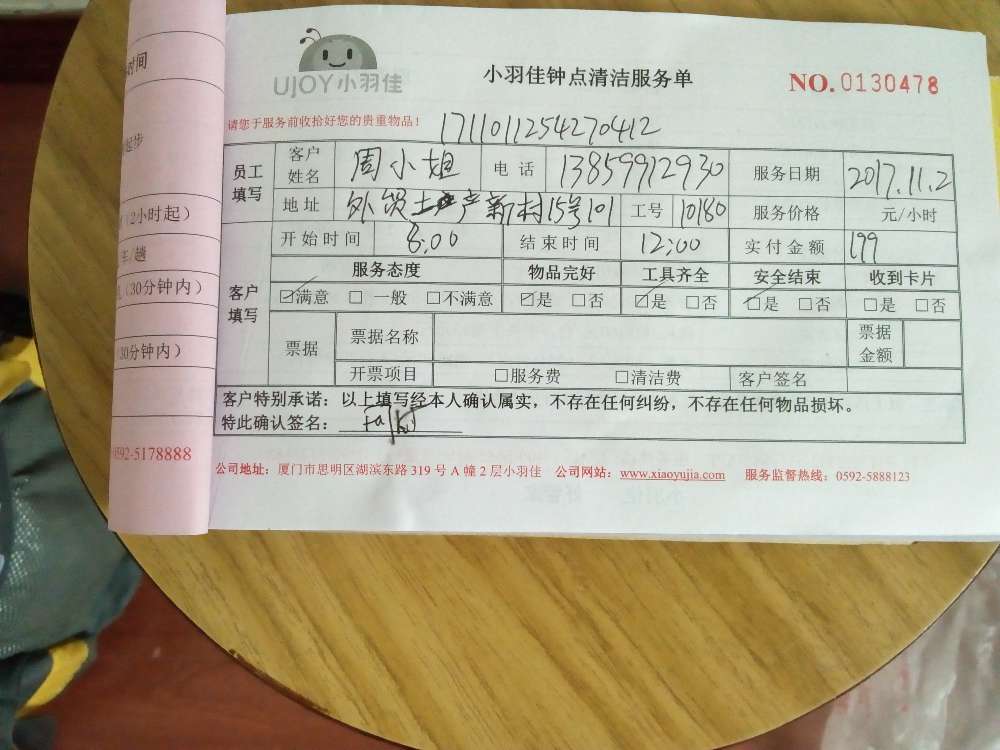 时间
起步
（2小时起）
车/趟
（30分钟内）
（30分钟内）
0592-5178888
UJOY小羽佳
小羽佳钟点清洁服务单
NO.0130478
请您于服务前收拾好您的贵重物品！
1711011254270412
员工填写 客户姓名 周小姐 电话 13859912930 服务日期 2017.11.2
地址 外贸土产新村15号101 工号 10180 服务价格 元/小时
客户填写 开始时间 8:00 结束时间 12:00 实付金额 199
服务态度 物品完好 工具齐全 安全结束 收到卡片
☑满意 □一般 □不满意 ☑是 □否 ☑是 □否 ☑是 □否 □是 □否
票据 票据名称 票据金额
开票项目 □服务费 □清洁费 客户签名
客户特别承诺：以上填写经本人确认属实，不存在任何纠纷，不存在任何物品损坏。
特此确认签名：
公司地址：厦门市思明区湖滨东路 319 号 A 幢 2 层小羽佳 公司网站：www.xiaoyujia.com 服务监督热线：0592-5888123